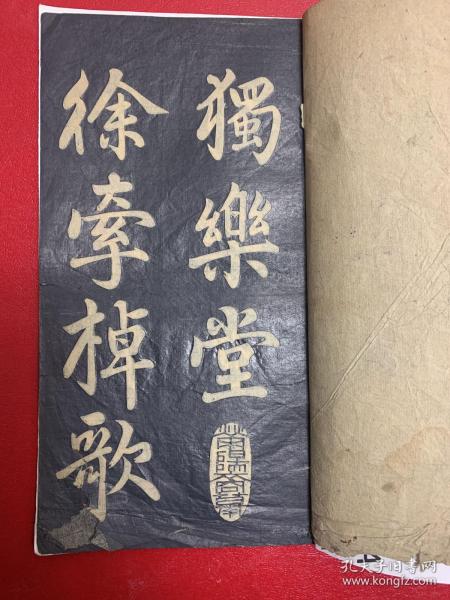 獨樂堂
徐牽棹歌
孔夫子旧书网
www.kongfz.com